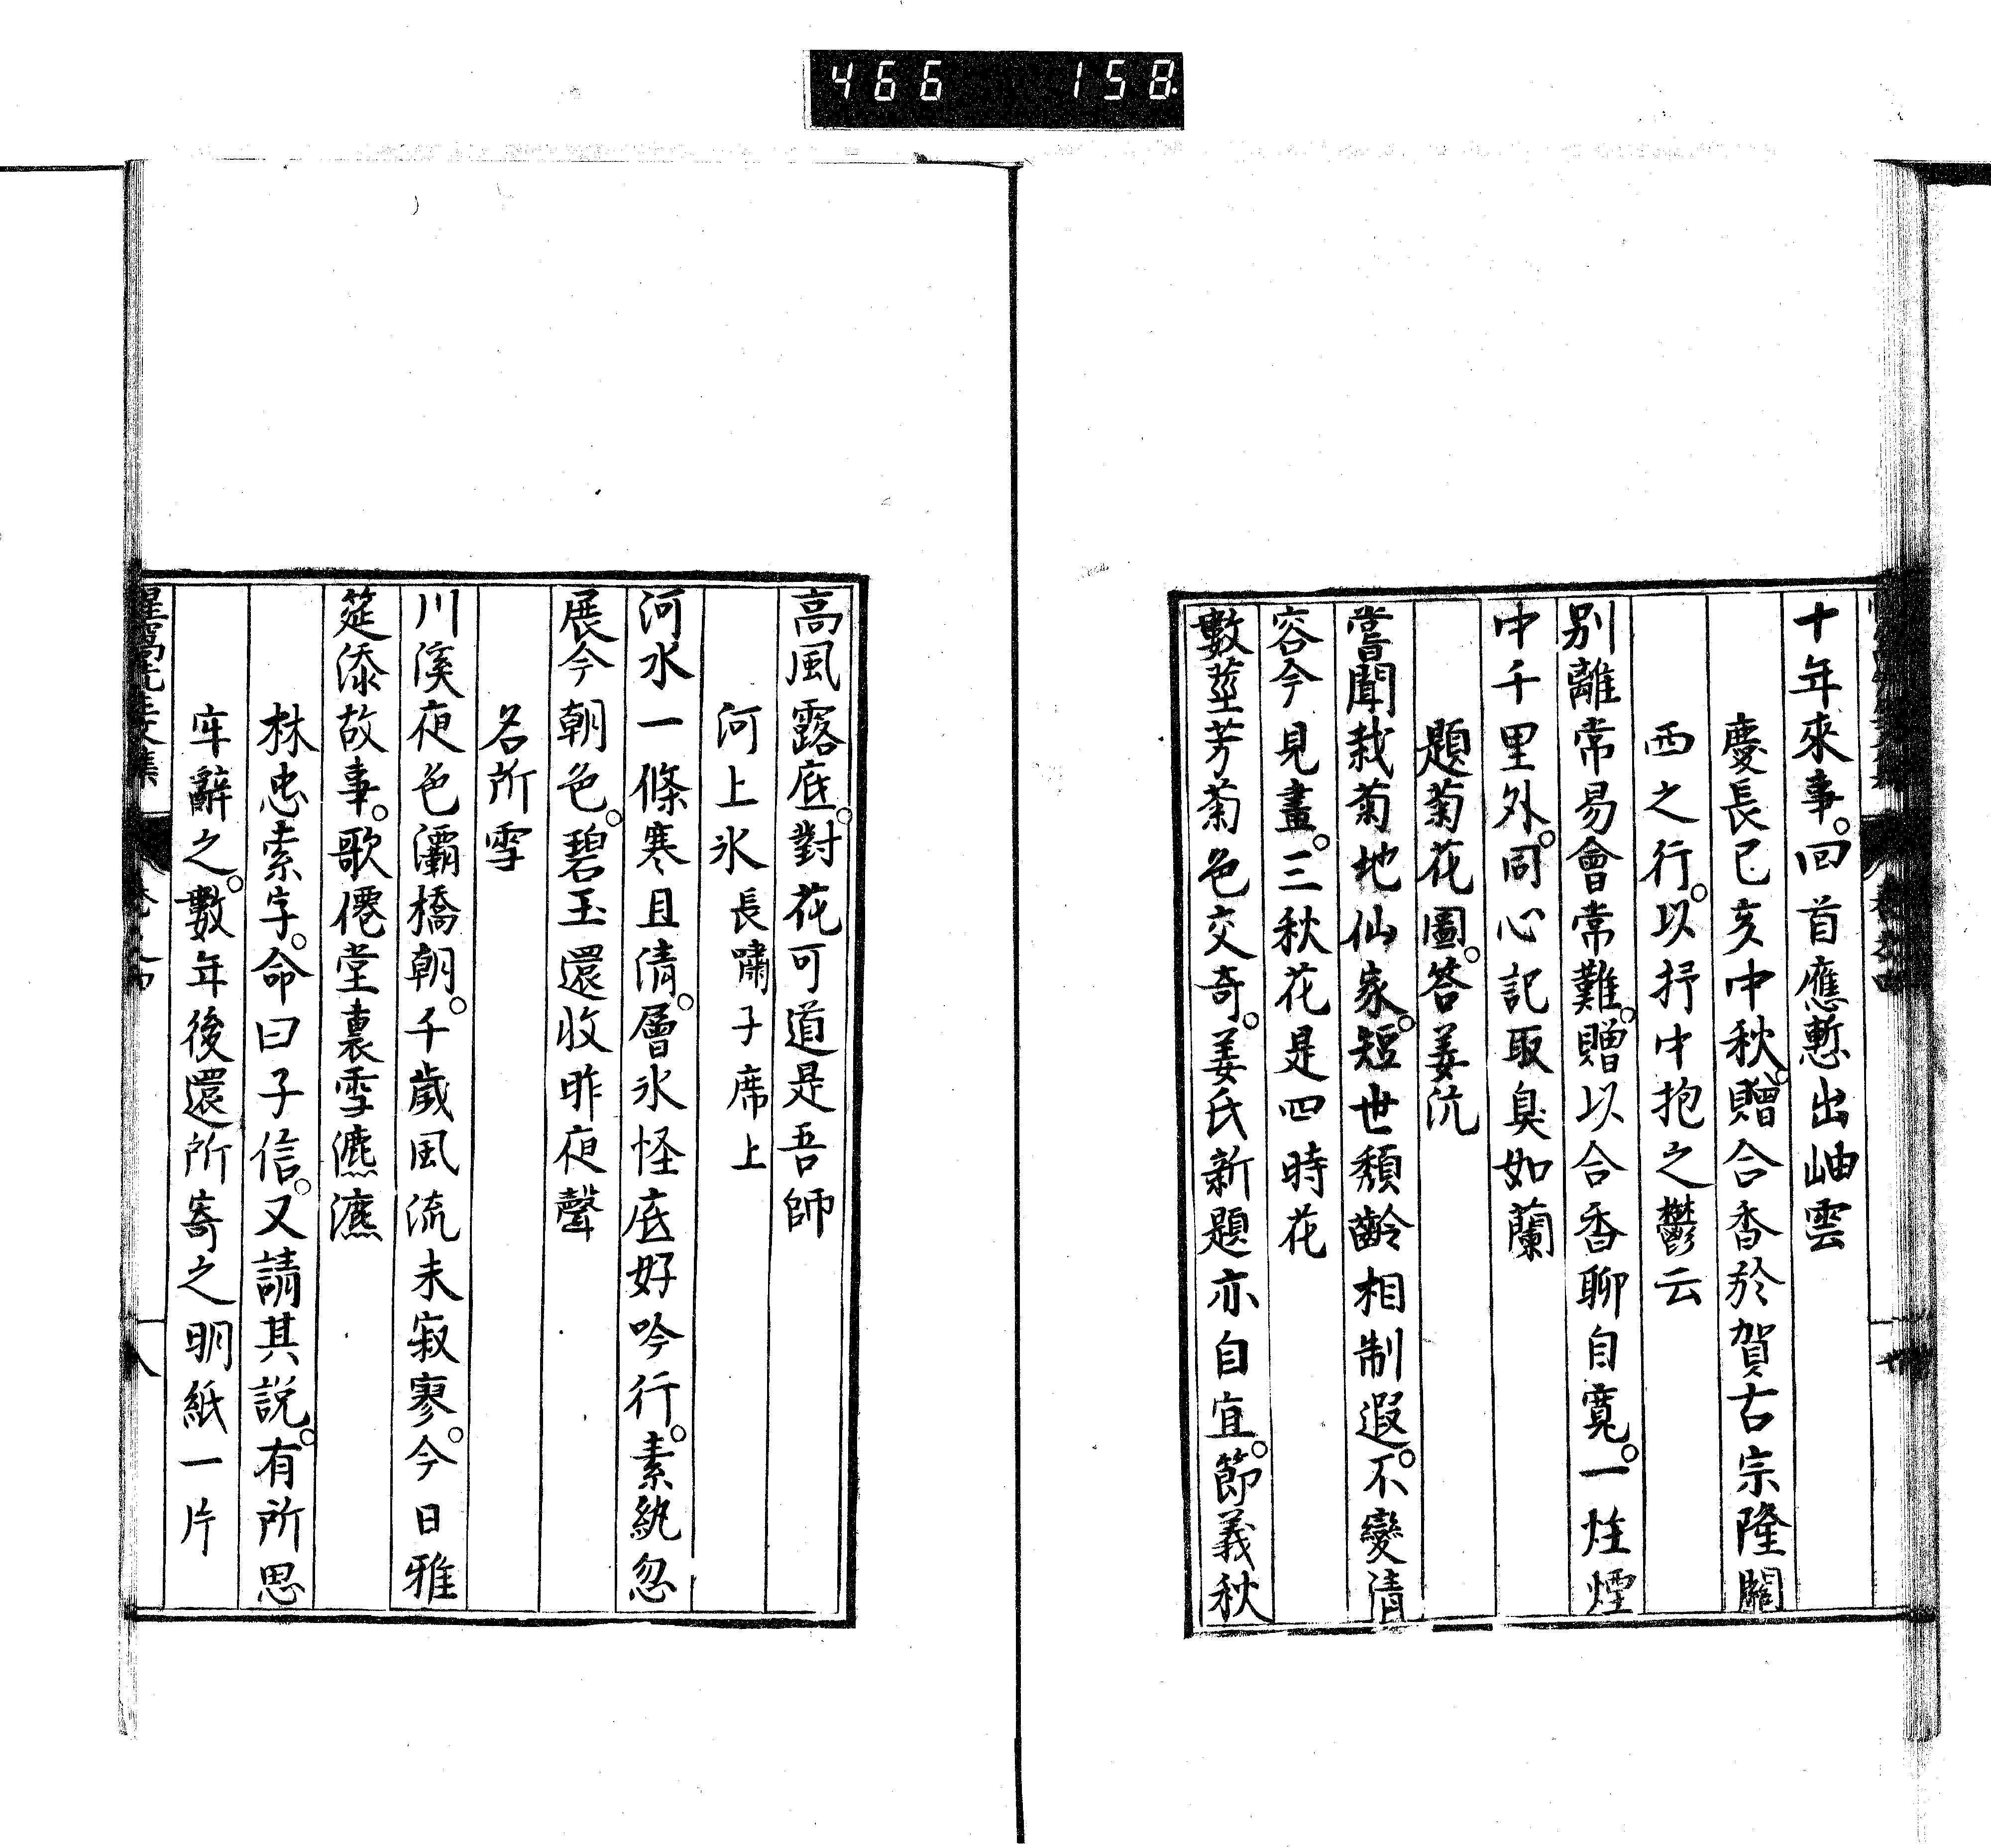 466 158
十年來事。回首應慙出岫雲
慶長己亥中秋。贈合香於賀古宗隆關
西之行。以抒中抱之鬱云
別離常易會常難。贈以合香聊自寬。一炷煙
中千里外。同心記取臭如蘭
題菊花圖。答姜沆
嘗聞栽菊地仙家。短世頹齡相制遐。不變清
容今見畫。三秋花是四時花
數莖芳菊色交奇。姜氏新題亦自宜。節義秋
高風露底。對花可道是吾師
河上氷 長嘯子席上
河水一條寒且清。層氷怪底好吟行。素紈忽
展今朝色。碧玉還收昨夜聲
名所雪
川溪夜色灞橋朝。千歲風流未寂寥。今日雅
筵添故事。歌僊堂裏雪瀌瀌
林忠索字。命曰子信。又請其説。有所思
牢辭之。數年後還所寄之明紙一片